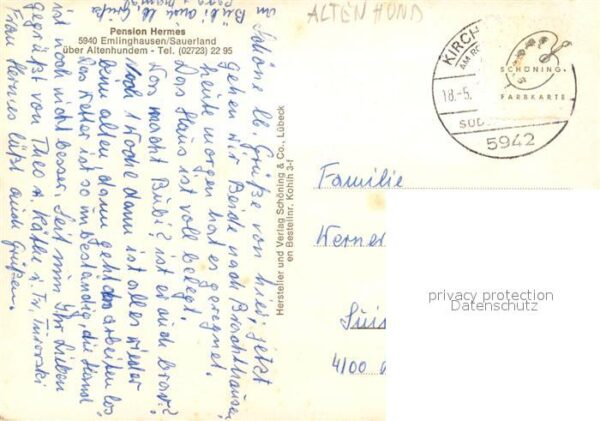 ALTENHUND
Pension Hermes
5940 Emlinghausen/Sauerland
über Altenhundem - Tel. (02723) 22 95
Schöne lb. Grüße von hier, jetzt
gehen wir Beide nach Brachthausen,
heute morgen hat es geregnet.
Das Haus ist voll belegt.
Was macht Bubi? ist er auch brav?
Noch 1 Woche dann ist alles wieder
beim alten dann geht das arbeiten los
Das Wetter ist so unbeständig, die Hand
ist noch nicht besser. Seid nun Ihr Lieben
gegrüßt von Theo u. Käthe u. Fr.
Frau Hermes läßt auch Grüßen.
Bubi auch lb. Grüße
Hersteller und Verlag Schöning & Co., Lübeck
en Bestellnr. Kohlh 3-f
KIRCH
18.-5.
SÜD
5942
SCHÖNING-
FARBKARTE
Familie
Werner
4100
privacy protection
Datenschutz